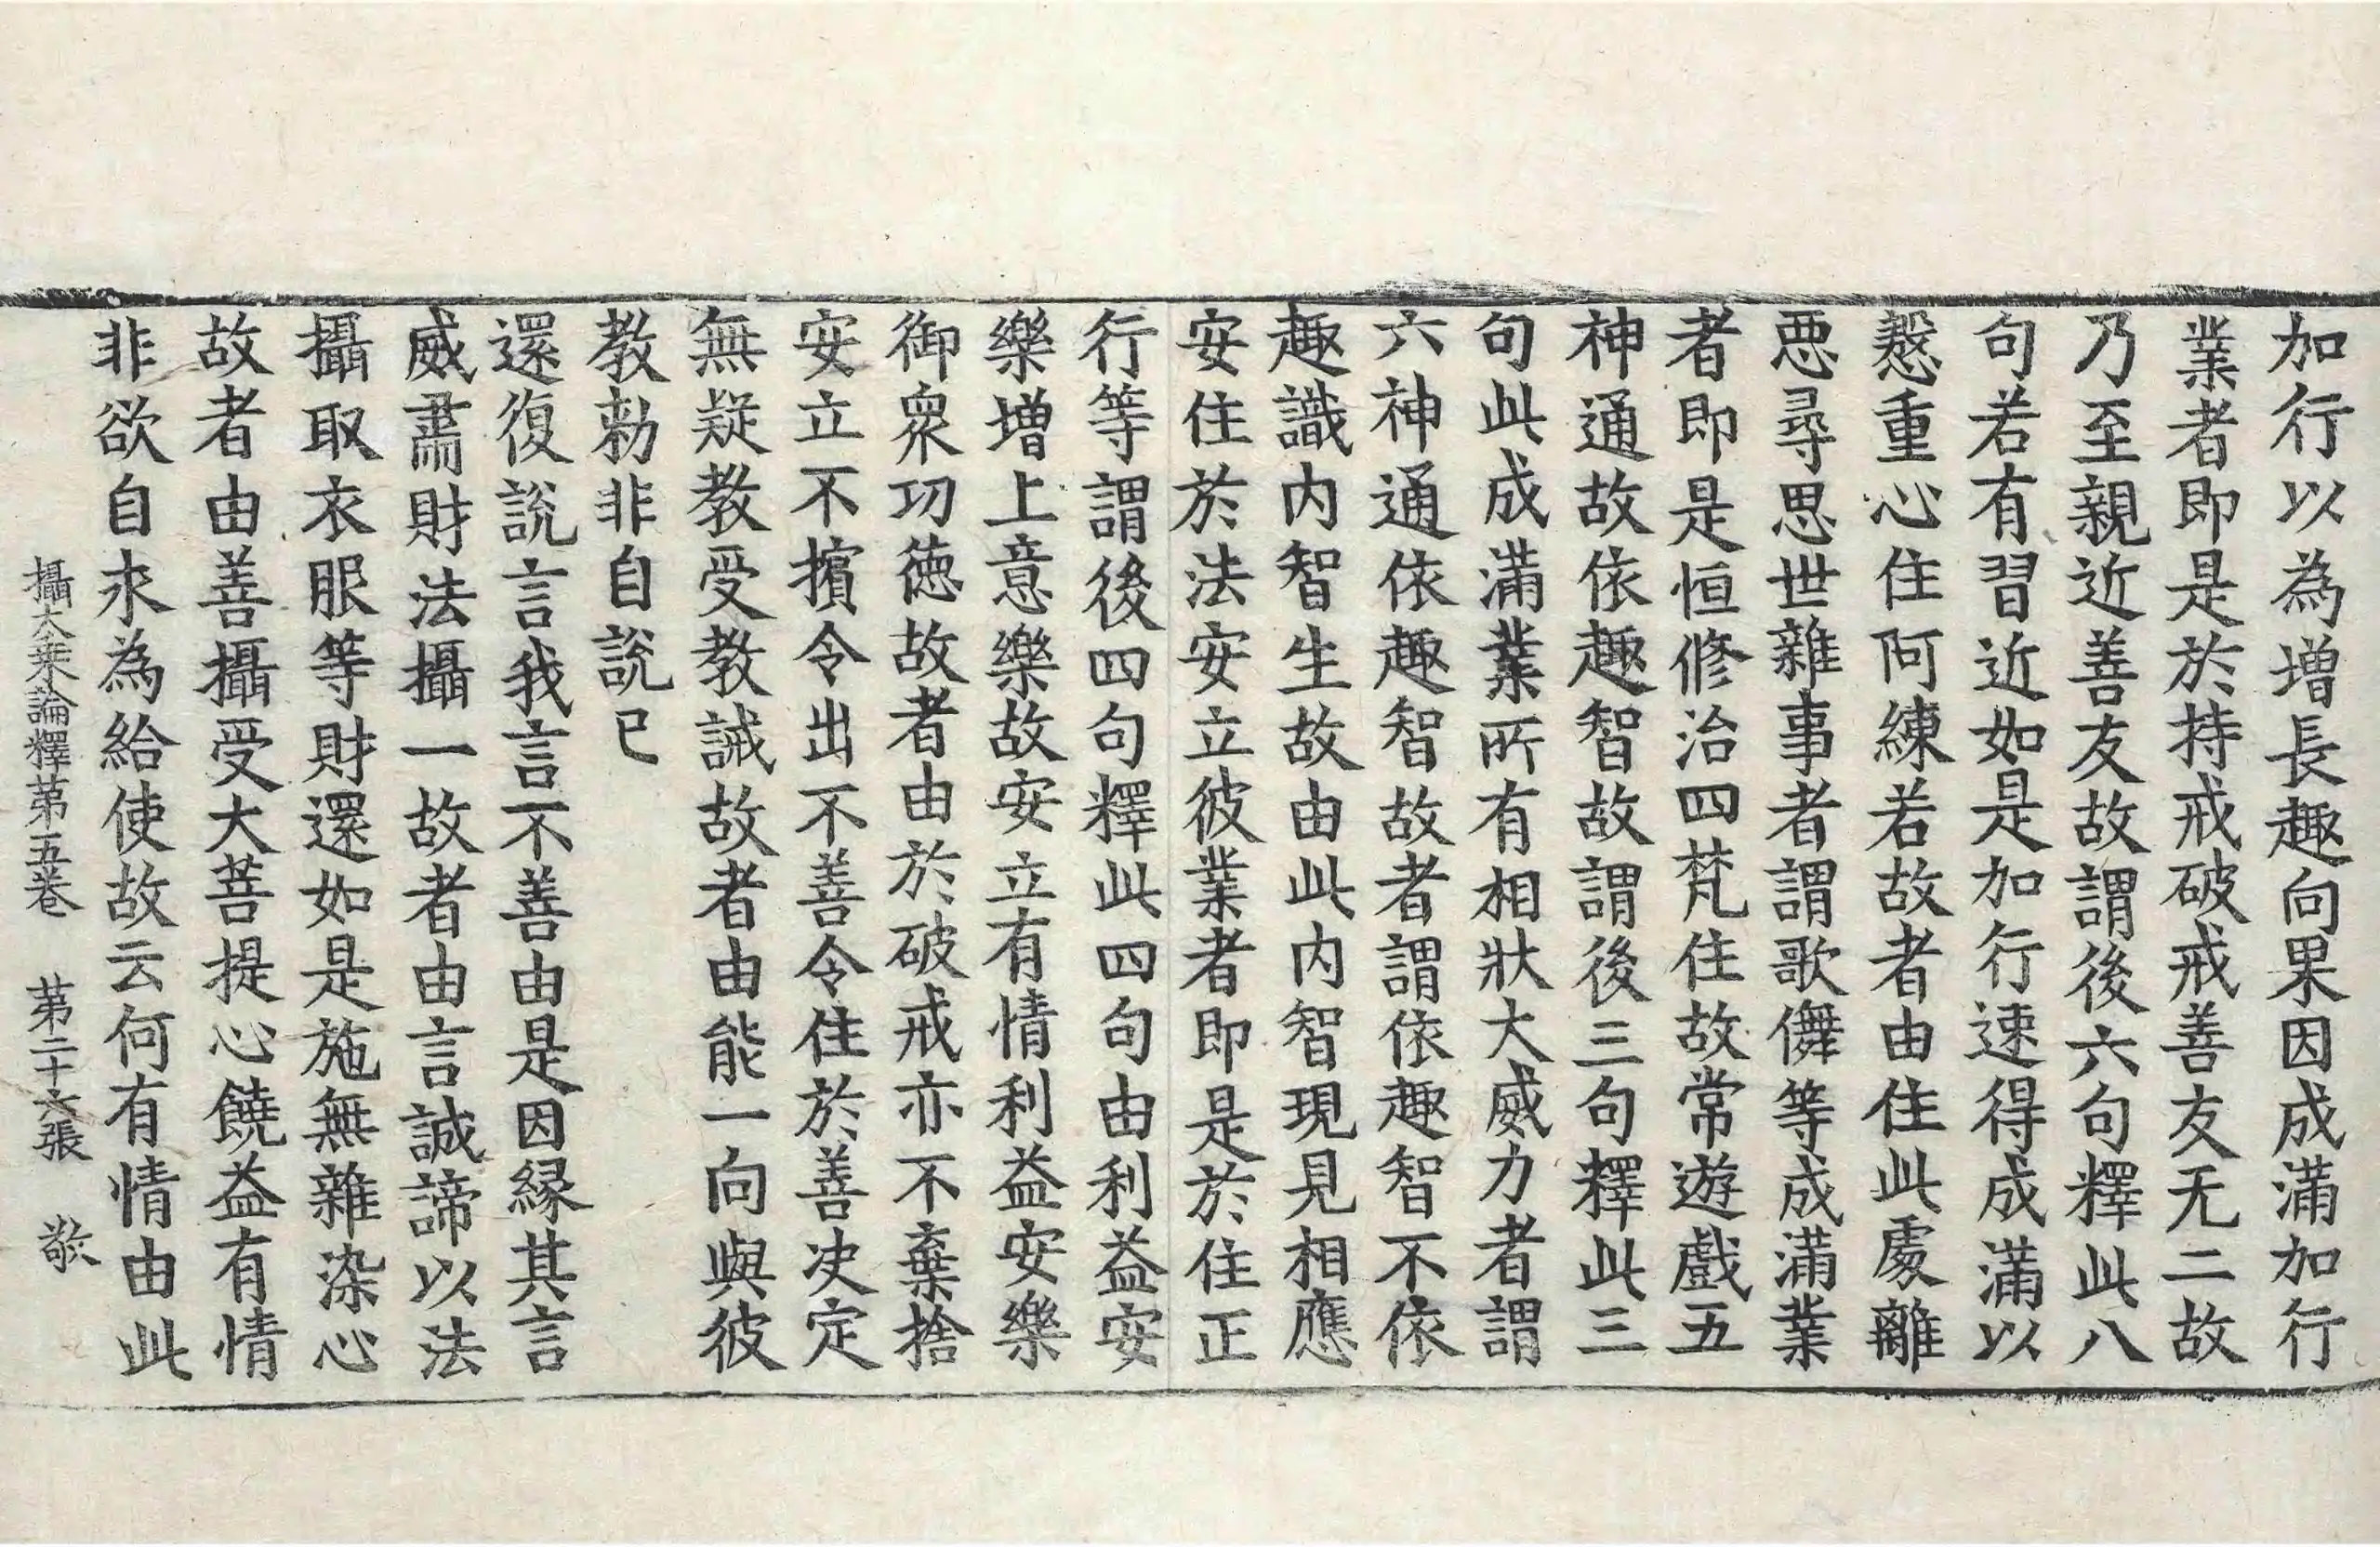 加行以為增長趣向果因成滿加行
業者即是於持戒破戒善友无二故
乃至親近善友故謂後六句釋此八
句若有習近如是加行速得成滿以
慇重心住阿練若故者由住此處離
惡尋思世雜事者謂歌儛等成滿業
者即是恒修治四梵住故常遊戲五
神通故依趣智故謂後三句釋此三
句此成滿業所有相狀大威力者謂
六神通依趣智故者謂依趣智不依
趣識内智生故由此内智現見相應
安住於法安立彼業者即是於住正
行等謂後四句釋此四句由利益安
樂增上意樂故安立有情利益安樂
御衆功德故者由於破戒亦不棄捨
安立不擯令出不善令住於善决定
無疑教受教誡故者由能一向與彼
教勑非自說已
還復說言我言不善由是因緣其言
威肅財法攝一故者由言誠諦以法
攝取衣服等財還如是施無雜染心
故者由善攝受大菩提心饒益有情
非欲自求為給使故云何有情由此
攝大乘論釋第五卷　第二十六張　敬